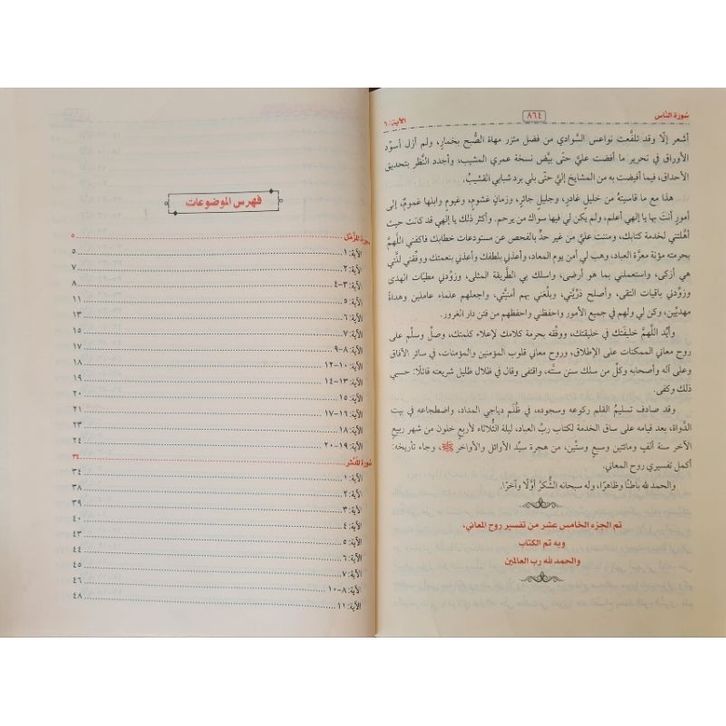 سُورَة النَّاس
٨٦٤
الآية: ٦
أشعر إلّا وقد تلفَّعت نواعس السَّوادي من فضل مئزر مهاة الصُّبح بخمار، ولم أزل أسوِّد
الأوراق في تحرير ما أفضت عليَّ حتّى بيَّض نسخة عمري المشيب، وأجدد النَّظر بتحديق
الأحداق، فيما أفيضت به من المشايخ إليَّ حتّى بلي برد شبابي القشيب.
هذا مع ما قاسيتهُ من خليلٍ غادرٍ، وجليل جائرٍ، وزمانٍ غشوم، وغيوم وابلها غموم، إلى
أمورٍ أنتَ بها يا إلهي أعلم، ولم يكن لي فيها سواك من يرحم. وأكثر ذلك يا إلهي قد كانت حيث
أهَّلتني لخدمة كتابك، ومننت عليَّ من غير حدٍّ بالفحص عن مستودعات خطابك فاكفني اللَّهمَّ
بحرمته مؤنة معرَّة العباد، وهب لي أمن يوم المعاد، وأعذني بلطفك وأعذني بنعمتك ووفِّقني للَّتي
هي أزكى، واستعملني بما هو أرضى، واسلك بي الطَّريقة المثلى، وزوِّدني مطيّات الهدى
وزوِّدني باقيات التقى، وأصلح ذرِّيَّتي، وبلِّغني بهم أمنيَّتي، واجعلهم علماء عاملين وهداةً
مهديِّين، وكن لي ولهم في جميع الأمور واحفظني واحفظهم من فتن دار الغرور.
وأيِّد اللَّهمَّ خليفتك في خليقتك، ووفِّقه بحرمة كلامك لإعلاء كلمتك، وصلِّ وسلِّم على
روح معاني الممكنات على الإطلاق، وروح معاني قلوب المؤمنين والمؤمنات، في سائر الآفاق
وعلى آله وأصحابه وكلّ من سلك سنن سنَّته، واقتفى وقال في ظلال ظليل شريعته قائلًا: حسبي
ذلك وكفى.
وقد صادف تسليمُ القلم ركوعه وسجوده، في ظُلَم دياجي المداد، واضطجاعه في بيت
الدَّواة، بعد قيامه على ساق الخدمة لكتاب ربِّ العباد، ليلة الثُّلاثاء لأربعٍ خلون من شهر ربيع
الآخر سنة ألفٍ ومائتين وسبع وستِّين، من هجرة سيِّد الأوائل والأواخر ﷺ، وجاء تأريخه:
أكمل تفسيري روح المعاني.
والحمد لله باطنًا وظاهرًا، وله سبحانه الشُّكرُ أوَّلًا وآخرًا.
تم الجزء الخامس عشر من تفسير روح المعاني،
وبه تم الكتاب
والحمد لله رب العالمين
فهرس الموضوعات
سورة المُزَّمِّل ٥
الآية: ١ ٥
الآية: ٢ ٧
الآية: ٣-٤ ٨
الآية: ٥ ١١
الآية: ٦ ١٣
الآية: ٧ ١٥
الآية: ٨-٩ ١٧
الآية: ١٠-١٢ ١٨
الآية: ١٣-١٤ ١٩
الآية: ١٥ ٢٠
الآية: ١٦-١٧ ٢١
الآية: ١٨ ٢٣
الآية: ١٩-٢٠ ٢٤
سُورَة المُدَّثِّر ٣٤
الآية: ١ ٣٤
الآية: ٢ ٣٨
الآية: ٣ ٣٩
الآية: ٤ ٤٠
الآية: ٥ ٤٣
الآية: ٦ ٤٤
الآية: ٧ ٤٥
الآية: ٨-١٠ ٤٦
الآية: ١١ ٤٨